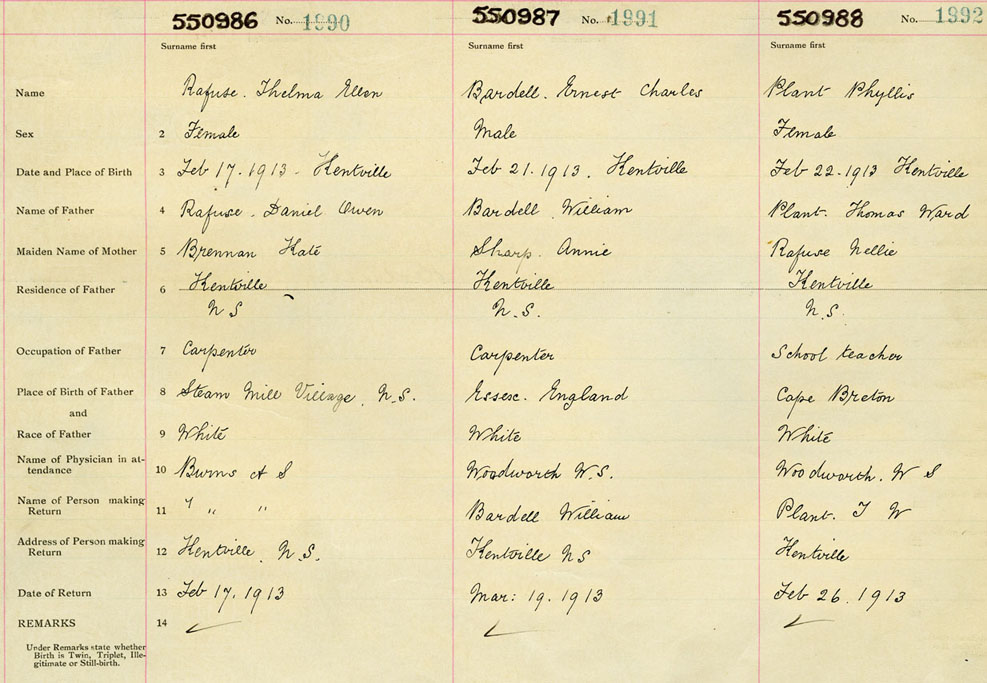 550986 No. 1990 550987 No. 1991 550988 No. 1992
Surname first Surname first Surname first
Name Rafuse. Thelma Ellen Bardell. Ernest Charles Plant Phyllis
Sex 2 Female Male Female
Date and Place of Birth 3 Feb 17. 1913 - Kentville Feb 21. 1913. Kentville Feb 22-1913 Kentville
Name of Father 4 Rafuse. Daniel Owen Bardell William Plant. Thomas Ward
Maiden Name of Mother 5 Brennan Kate Sharp. Annie Rafuse Nellie
Residence of Father 6 Kentville Kentville Kentville
N S N.S. N.S.
Occupation of Father 7 Carpenter Carpenter School teacher
Place of Birth of Father 8 Steam Mill Village. N.S. Essex. England Cape Breton
and
Race of Father 9 White White White
Name of Physician in at-
tendance 10 Burns A S Woodworth W.S. Woodworth. W S
Name of Person making
Return 11 " " " Bardell William Plant. T W
Address of Person making
Return 12 Kentville N.S. Kentville NS Kentville
Date of Return 13 Feb 17. 1913 Mar: 19. 1913 Feb 26. 1913
REMARKS 14
Under Remarks state whether
Birth is Twin, Triplet, Ille-
gitimate or Still-birth.